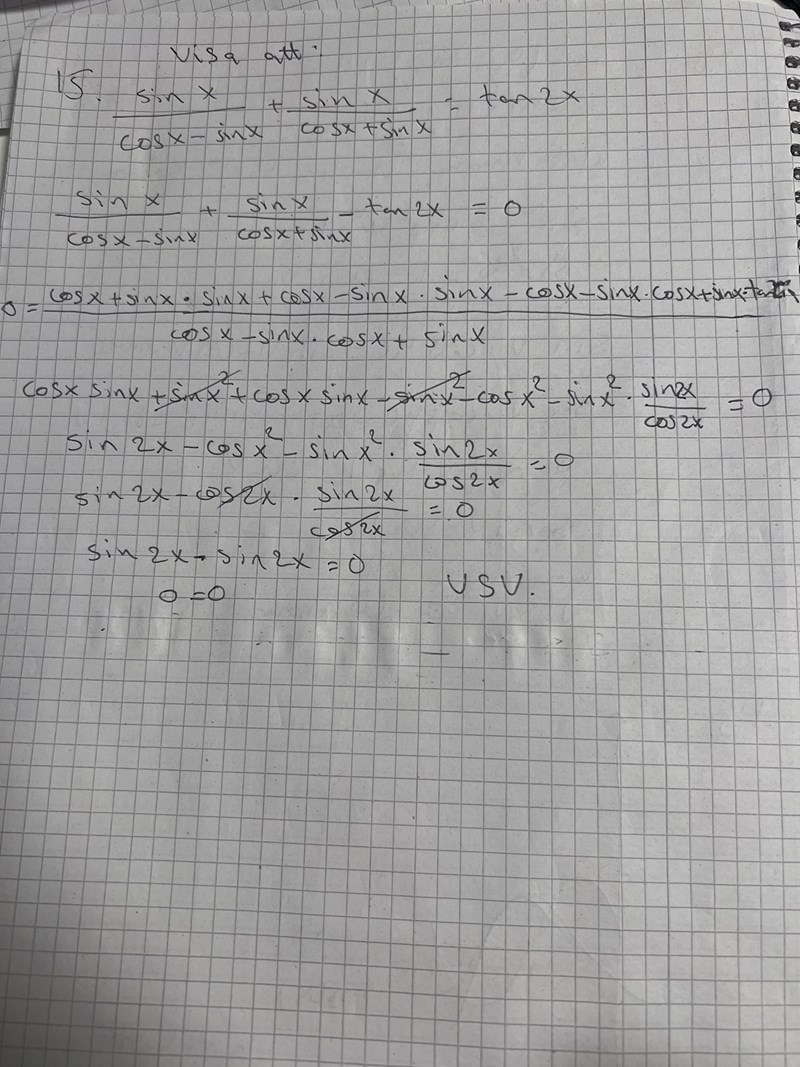 Visa att:
15. sin x / (cosx - sinx) + sin x / (cosx + sinx) = tan2x
sin x / (cosx - sinx) + sin x / (cosx + sinx) - tan2x = 0
0 = cosx + sinx · sinx + cosx - sinx · sinx - cosx - sinx · cosx + sinx · tan / cosx - sinx · cosx + sinx
cosx sinx + sinx² + cosx sinx - sinx² - cosx² - sinx² · sin2x / cos2x = 0
sin 2x - cosx² - sinx² · sin2x / cos2x = 0
sin2x - cos2x · sin2x / cos2x = 0
sin2x - sin2x = 0
0 = 0
VSV.